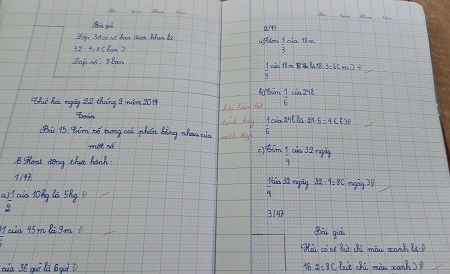 Bài giải
Lớp 3A có số bạn được khen là
32 : 4 = 8 ( bạn )
Đáp số : 8 bạn
Thứ hai ngày 22 tháng 9 năm 2014
Toán
Bài 15. Tìm số trong các phần bằng nhau của
một số.
B. Hoạt động thực hành :
1/47
a) 1/2 của 10kg là 5kg Đ
1/5 của 45m là 9m Đ
của 36 giờ là 6 giờ Đ
2/47
a) Tìm 1/3 của 18m
1/3 của 18m là 18 : 3 = 6 ( m )
b) Tìm 1/6 của 24l
1/6 của 24l là : 24 : 6 = 4 ( l ) Đ
c) Tìm 1/4 của 32 ngày
1/4 của 32 ngày 32 : 4 = 8 ( ngày ) Đ
3/47
Bài giải
có số bút chì màu xanh là Đ
16 : 2 = 8 ( bút chì màu xanh ) Đ